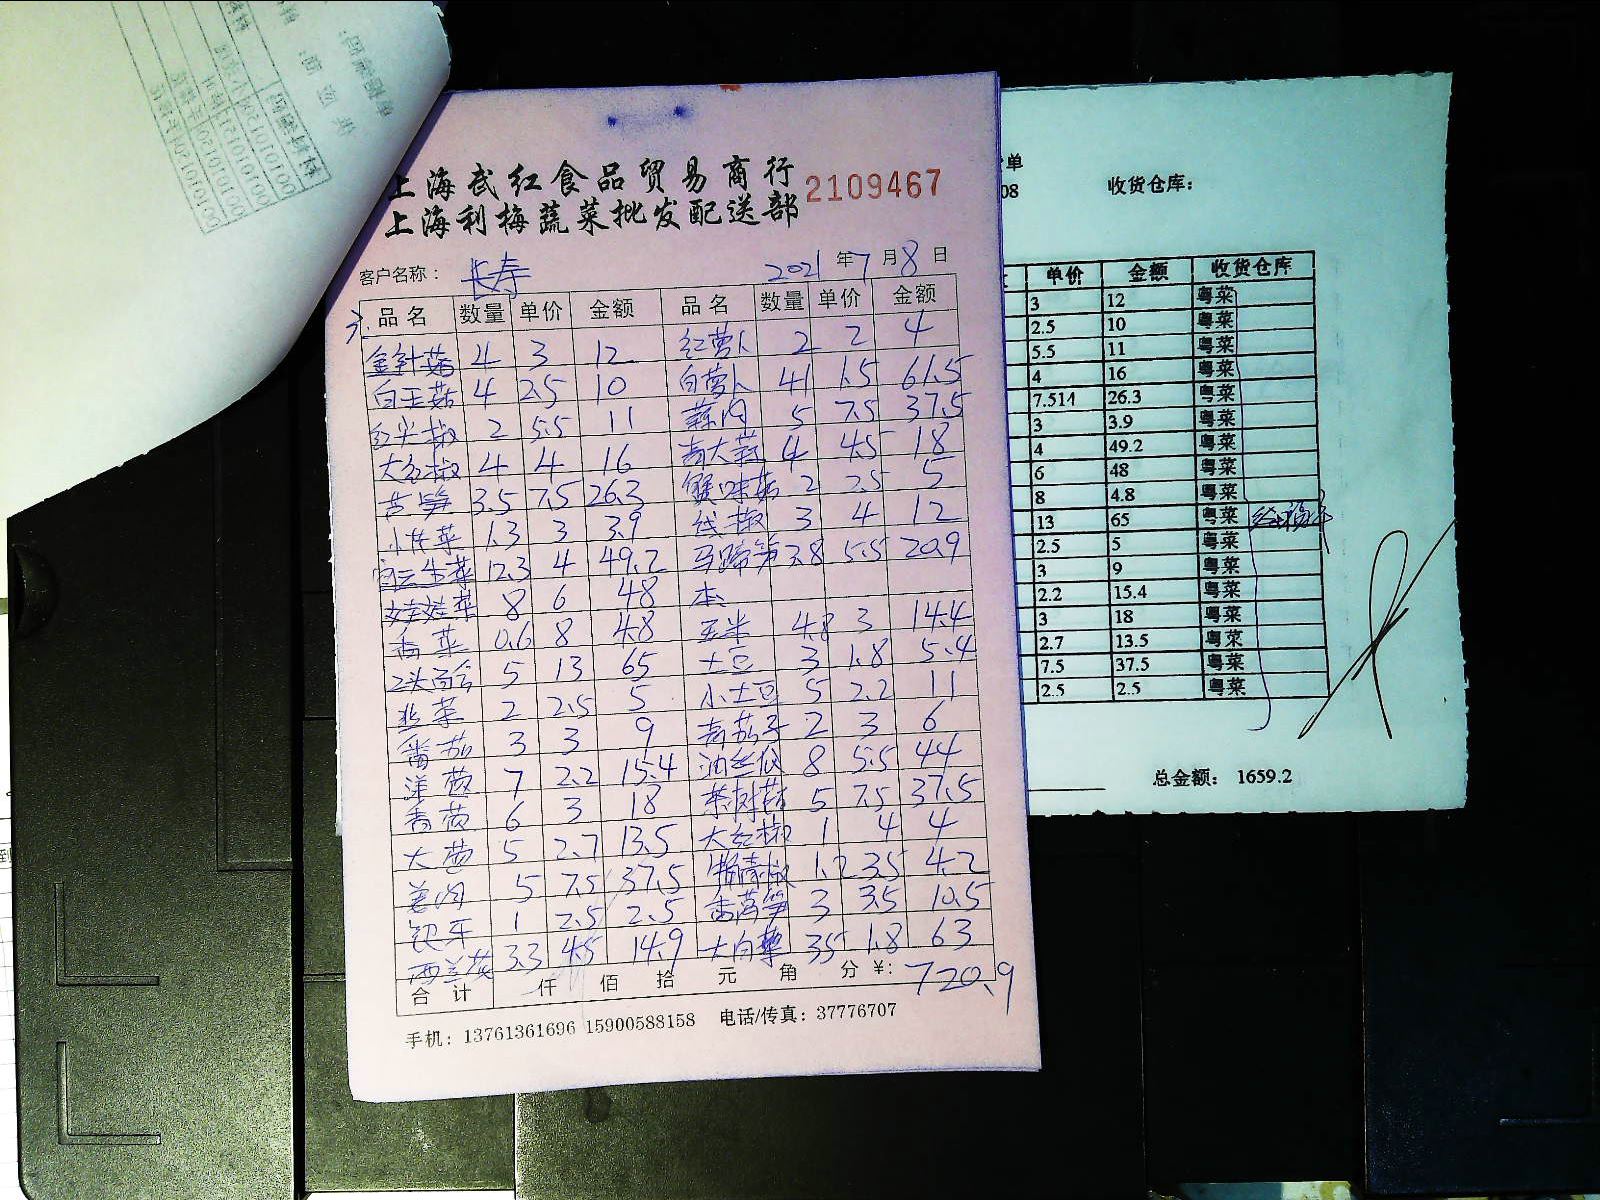 上海武红食品贸易商行
上海利梅蔬菜批发配送部
2109467
客户名称： 长寿 2021 年 7 月 8 日
品名 数量 单价 金额 品名 数量 单价 金额
金针菇 4 3 12 红萝卜 2 2 4
白玉菇 4 2.5 10 白萝卜 41 1.5 61.5
红尖椒 2 5.5 11 蒜肉 5 7.5 37.5
大红椒 4 4 16 青大蒜 4 4.5 18
芦笋 3.5 7.5 26.3 蟹味菇 2 2.5 5
小伙菜 1.3 3 3.9 线椒 3 4 12
生菜 12.3 4 49.2 马蹄笋 3.8 5.5 20.9
娃娃菜 8 6 48 本
香菜 0.6 8 4.8 玉米 4.8 3 14.4
5 13 65 土豆 3 1.8 5.4
韭菜 2 2.5 5 小土豆 5 2.2 11
番茄 3 3 9 青茄子 2 3 6
洋葱 7 2.2 15.4 油丝瓜 8 5.5 44
香葱 6 3 18 茶树菇 5 7.5 37.5
大葱 5 2.7 13.5 大红椒 1 4 4
姜肉 5 7.5 37.5 1.2 3.5 4.2
银牙 1 2.5 2.5 香莴笋 3 3.5 10.5
西兰花 3.3 4.5 14.9 大白菜 35 1.8 63
合计 仟 佰 拾 元 角 分 ¥: 720.9
手机：13761361696 15900588158 电话/传真：37776707
单
08 收货仓库：
单价 金额 收货仓库
3 12 粤菜
2.5 10 粤菜
5.5 11 粤菜
4 16 粤菜
7.514 26.3 粤菜
3 3.9 粤菜
4 49.2 粤菜
6 48 粤菜
8 4.8 粤菜
13 65 粤菜
2.5 5 粤菜
3 9 粤菜
2.2 15.4 粤菜
3 18 粤菜
2.7 13.5 粤菜
7.5 37.5 粤菜
2.5 2.5 粤菜
总金额： 1659.2